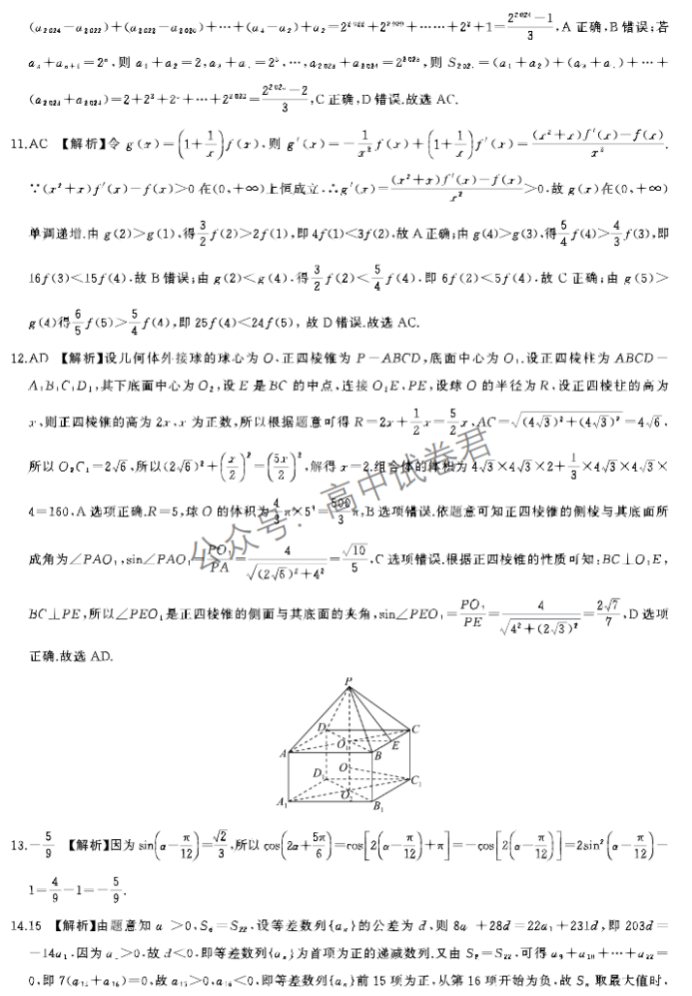 (a₂₀₂₄-a₂₀₂₂)+(a₂₀₂₂-a₂₀₂₀)+⋯+(a₄-a₂)+a₂=2²⁰²²+2²⁰²⁰+⋯⋯+2²+1=(2²⁰²⁴-1)/3,A 正确,B 错误;若
aₙ+aₙ₊₁=2ⁿ,则 a₁+a₂=2,a₃+a₄=2³,⋯,a₂₀₂₃+a₂₀₂₄=2²⁰²³,则 S₂₀₂₄=(a₁+a₂)+(a₃+a₄)+⋯+
(a₂₀₂₃+a₂₀₂₄)=2+2³+2⁵+⋯+2²⁰²³=(2²⁰²⁵-2)/3,C 正确,D 错误.故选 AC.
11.AC 【解析】令 g(x)=(1+1/x)f(x),则 g′(x)=-1/x² f(x)+(1+1/x)f′(x)=((x²+x)f′(x)-f(x))/x².
∵(x²+x)f′(x)-f(x)>0 在(0,+∞)上恒成立,∴g′(x)=((x²+x)f′(x)-f(x))/x²>0.故 g(x)在(0,+∞)
单调递增.由 g(2)>g(1),得 3/2 f(2)>2f(1),即 4f(1)<3f(2),故 A 正确;由 g(4)>g(3),得 5/4 f(4)>4/3 f(3),即
16f(3)<15f(4).故 B 错误;由 g(2)<g(4).得 3/2 f(2)<5/4 f(4).即 6f(2)<5f(4).故 C 正确;由 g(5)>
g(4)得 6/5 f(5)>5/4 f(4),即 25f(4)<24f(5),故 D 错误.故选 AC.
12.AD 【解析】设几何体外接球的球心为 O,正四棱锥为 P-ABCD,底面中心为 O₁,设正四棱柱为 ABCD-
A₁B₁C₁D₁,其下底面中心为 O₂,设 E 是 BC 的中点,连接 O₁E,PE,设球 O 的半径为 R,设正四棱柱的高为
x,则正四棱锥的高为 2x,x 为正数,所以根据题意可得 R=2x+1/2 x=5/2 x,AC=√((4√3)²+(4√3)²)=4√6,
所以 O₂C₁=2√6,所以(2√6)²+(x/2)²=(5x/2)²,解得 x=2.组合体的体积为 4√3×4√3×2+1/3×4√3×4√3×
4=160,A 选项正确.R=5,球 O 的体积为 4/3 π×5³=500/3 π,B 选项错误.依题意可知正四棱锥的侧棱与其底面所
成角为∠PAO₁,sin∠PAO₁=PO₁/PA=4/√((2√6)²+4²)=√10/5,C 选项错误.根据正四棱锥的性质可知:BC⊥O₁E,
BC⊥PE,所以∠PEO₁是正四棱锥的侧面与其底面的夹角,sin∠PEO₁=PO₁/PE=4/√(4²+(2√3)²)=2√7/7,D 选项
正确.故选 AD.
P
D
C
O₁
E
A
B
O
D₁
C₁
O₂
A₁
B₁
13.-5/9 【解析】因为 sin(α-π/12)=√2/3,所以 cos(2α+5π/6)=cos[2(α-π/12)+π]=-cos[2(α-π/12)]=2sin²(α-π/12)-
1=4/9-1=-5/9.
14.15 【解析】由题意知 a₁>0,S₈=S₂₂,设等差数列{aₙ}的公差为 d,则 8a₁+28d=22a₁+231d,即 203d=
-14a₁.因为 a₁>0.故 d<0.即等差数列{aₙ}为首项为正的递减数列.又由 S₈=S₂₂,可得 a₉+a₁₀+⋯+a₂₂=
0,即 7(a₁₅+a₁₆)=0,故 a₁₅>0,a₁₆<0,即等差数列{aₙ}前 15 项为正,从第 16 项开始为负,故 Sₙ 取最大值时,
公众号:高中试卷君